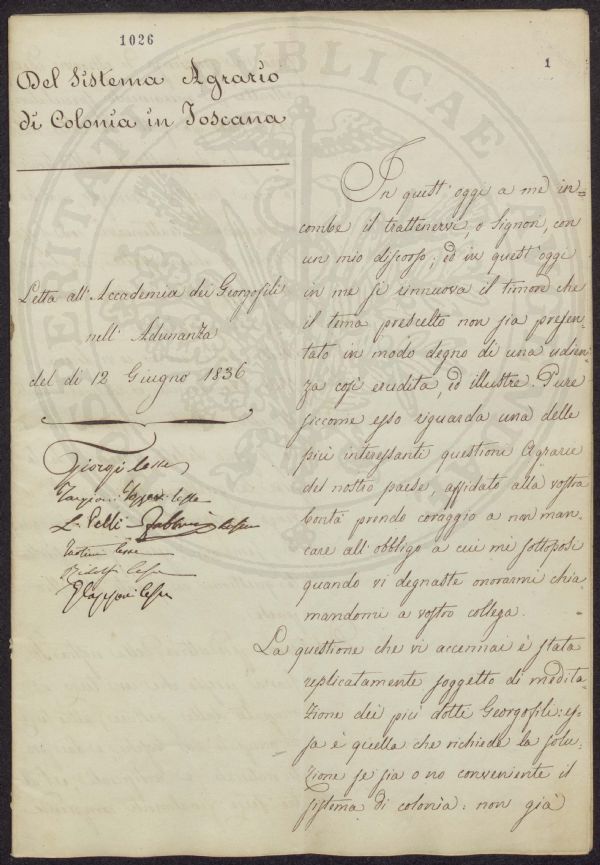 1026
1
Del Sistema Agrario
di Colonia in Toscana
Letta all'Accademia dei Georgofili
nell' Adunanza
del dì 12 Giugno 1836
Giorgi lesse
Targioni Tozzetti lesse
L. Pelli - Fabbroni lesse
lesse
Ridolfi lesse
lesse
In quest'oggi a me in=
combe il trattenervi, o Signori, con
un mio discorso; ed in quest'oggi
in me si rinnuova il timore che
il tema prescelto non sia presen-
tato in modo degno di una udien-
za così erudita, ed illustre. Pure
siccome esso riguarda una delle
più interessanti questioni Agrarie
del nostro paese, affidato alla vostra
bontà prendo coraggio a non man-
care all'obbligo a cui mi sottoposi
quando vi degnaste onorarmi chia-
mandomi a vostro collega.
La questione che vi accennai è stata
replicatamente soggetto di medita-
zione dei più dotti Georgofili: es-
sa è quella che richiede la solu-
zione se sia o no conveniente il
sistema di colonìa: non già
SEVERITAT PUBLICAE